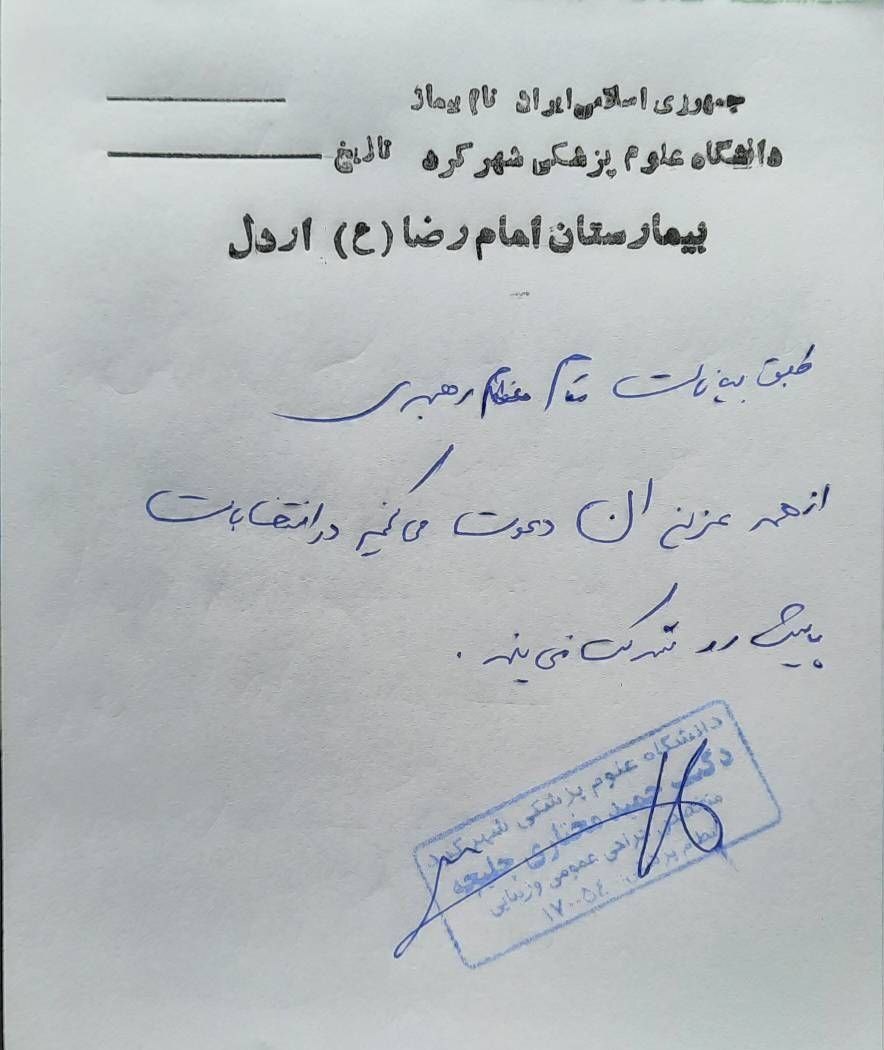 جمهوری اسلامی ایران نام بیمار
دانشگاه علوم پزشکی شهر کرد تاریخ
بیمارستان امام رضا (ع) اردل
طبق بیانات مقام معظم رهبری
از همه عزیزان دعوت می کنیم در انتخابات
پیش رو شرکت نمایند .
دانشگاه علوم پزشکی شهرکرد
دکتر حمید مختاری جلیچه
جراحی عمومی و زیبایی
نظام پزشکی